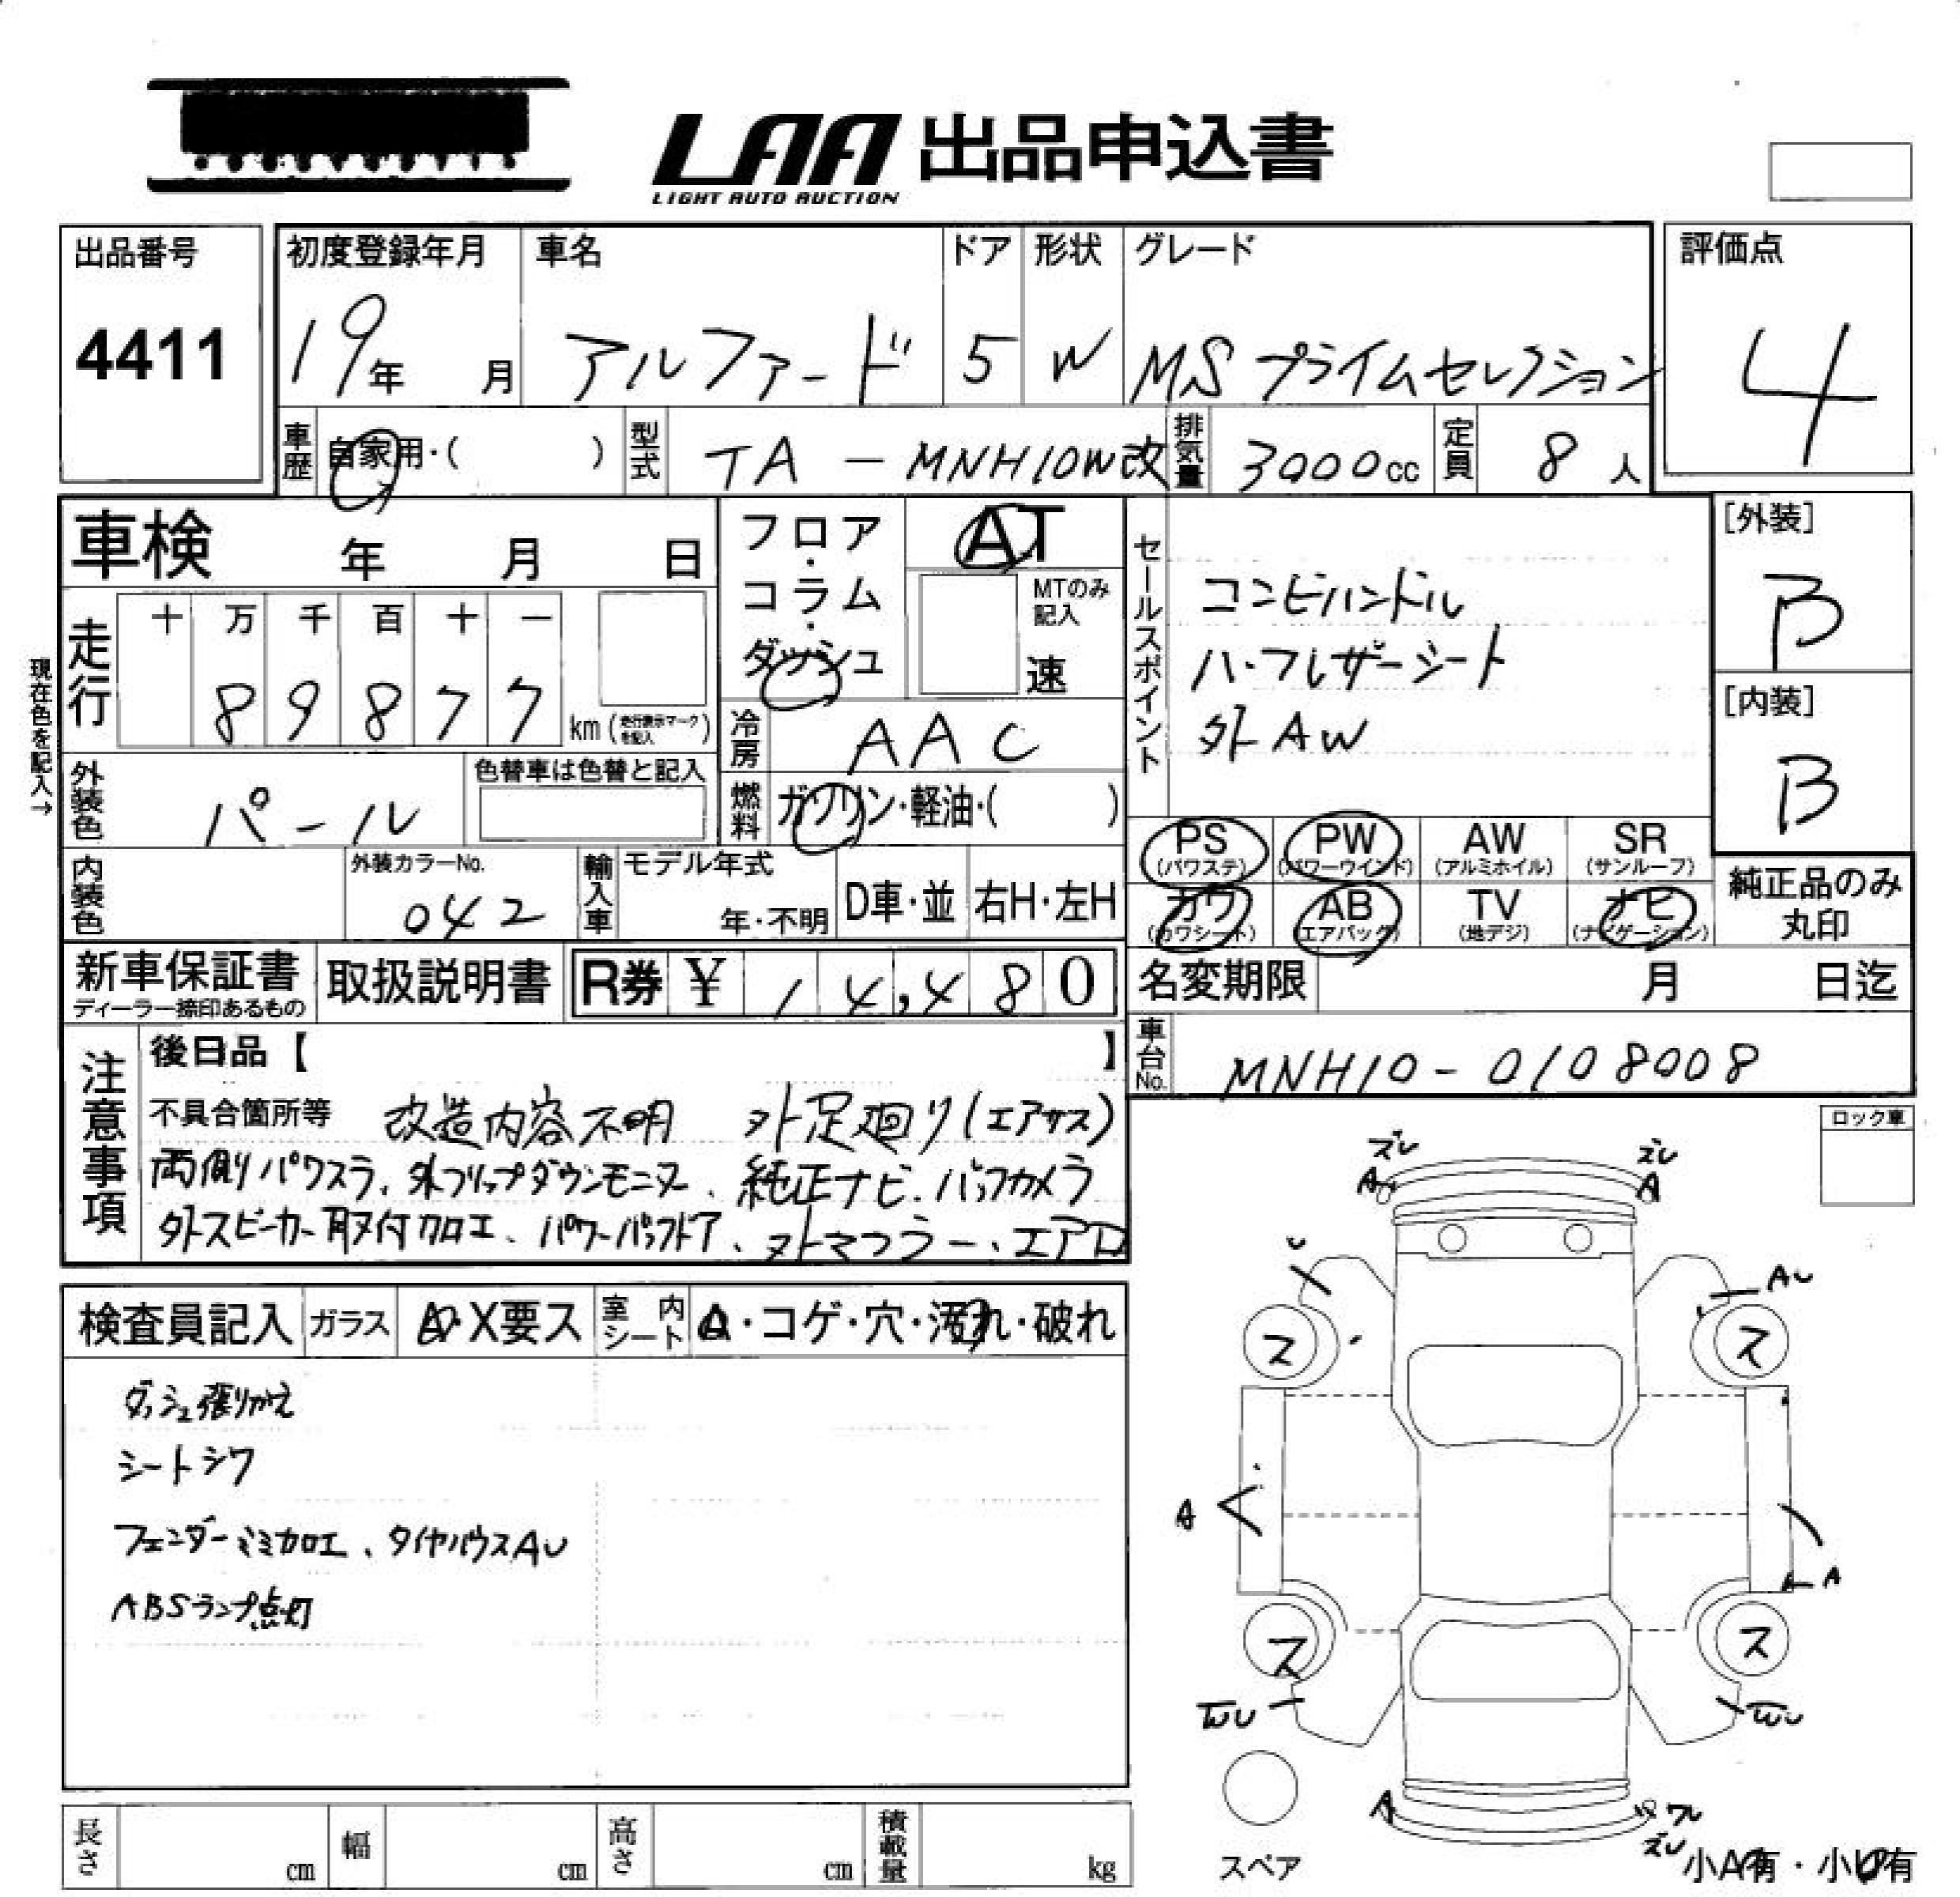 LAA 出品申込書
LIGHT AUTO AUCTION
出品番号 初度登録年月 車名 ドア 形状 グレード 評価点
4411 19年 月 アルファード 5 W MSプライムセレクション 4
車歴 自家用・( ) 型式 TA-MNH10W改 排気量 3000cc 定員 8人
車検 年 月 日
フロア・コラム・ダッシュ
AT
MTのみ記入
速
セールスポイント
コンビハンドル
ハーフレザーシート
外AW
[外装]
B
[内装]
B
現在色を記入→
走行 十 万 千 百 十 一
89877
km(走行表示マークを記入)
冷房 AAC
外装色 パール 色替車は色替と記入
燃料 ガソリン・軽油・( )
PS (パワステ) PW (パワーウインド) AW (アルミホイル) SR (サンルーフ)
カワ (カワシート) AB (エアバック) TV (地デジ) ナビ (ナビゲーション)
純正品のみ丸印
内装色 外装カラーNo. 042 輸入車 モデル年式 年・不明 D車・並 右H・左H
新車保証書 ディーラー捺印あるもの 取扱説明書 R券 ¥ 14,480
名変期限 月 日迄
車台No. MNH10-0108008
注意事項
後日品【 】
不具合箇所等 改造内容不明 外足廻り(エアサス)
両側パワスラ、外フリップダウンモニター、純正ナビ、バックカメラ
外スピーカー取付加工、パワーバックドア、外マフラー、エアロ
ロック車
検査員記入 ガラス A・X要ス 室内シート A・コゲ・穴・汚れ・破れ
ダッシュ張りかえ
シートシワ
フェンダーミミカロエ、タイヤハウスAU
ABSランプ点灯
ズレ ズレ
A A
U AU
ス ス
A A
A
ス ス
WU WU
A ワレ
ズレ
スペア
小A有・小U有
長さ cm 幅 cm 高さ cm 積載量 kg